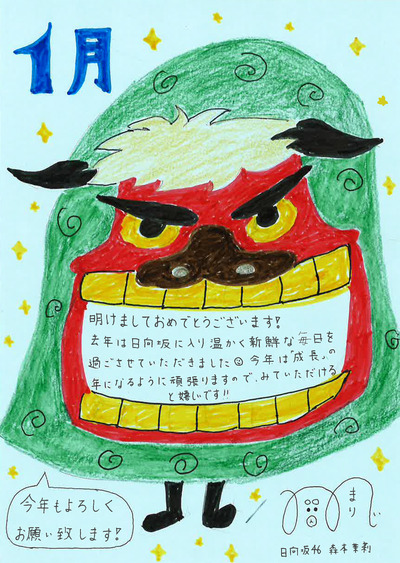 1月
明けましておめでとうございます!
去年は日向坂に入り温かく新鮮な毎日を
過ごさせていただきました☺今年は成長」の
年になるように頑張りますので、みていただける
と嬉しいです!!
今年もよろしく
お願い致します!
まりぃ
日向坂46 森本茉莉